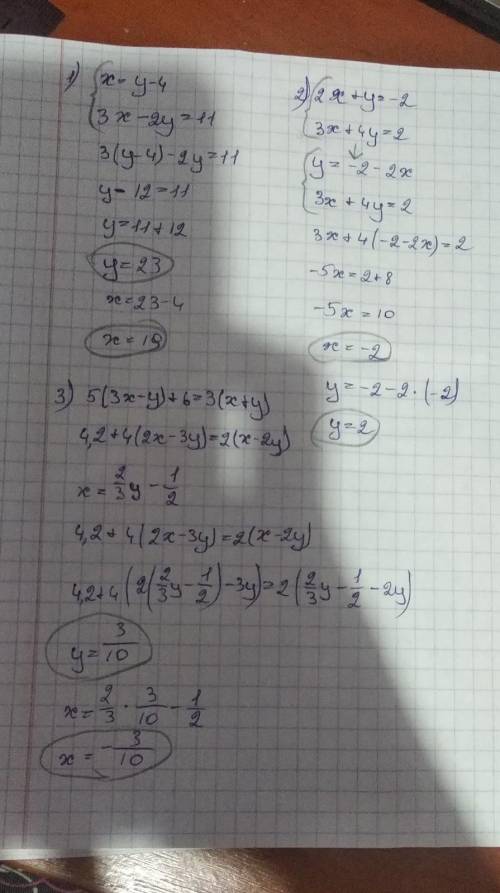 1) { x = y - 4
3x - 2y = 11
3(y-4) - 2y = 11
y - 12 = 11
y = 11 + 12
y = 23
x = 23 - 4
x = 19
2) { 2x + y = -2
3x + 4y = 2
↓
{ y = -2 - 2x
3x + 4y = 2
3x + 4(-2-2x) = 2
-5x = 2 + 8
-5x = 10
x = -2
y = -2 - 2 · (-2)
y = 2
3) 5(3x-y)+6=3(x+y)
4,2+4(2x-3y)=2(x-2y)
x = 2/3 y - 1/2
4,2+4(2x-3y)=2(x-2y)
4,2+4(2(2/3 y - 1/2)-3y)=2(2/3 y - 1/2 - 2y)
y = 3/10
x = 2/3 · 3/10 - 1/2
x = -3/10